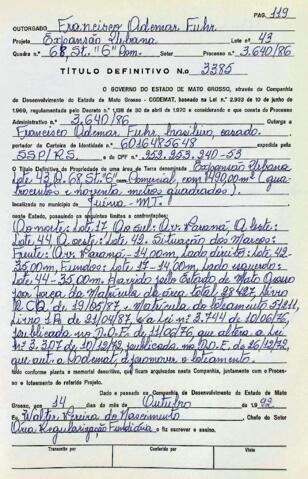 PAG. 119
OUTORGADO Francisco Odemar Fuhr
Projeto Expansão Urbana Lote n.o 43
Quadra n.o 68, St. "G" Com. Setor Processo n.o 3.640/86
TÍTULO DEFINITIVO N.o 3385
O GOVERNO DO ESTADO DE MATO GROSSO, através da Companhia
de Desenvolvimento do Estado de Mato Grosso - CODEMAT, baseado na Lei N.o 2.933 de 10 de junho de
1969, regulamentada pelo Decreto N.o 1.138 de 30 de abril de 1970 e considerando o que consta do Processo
Administrativo n.o 3.640/86 Outorga a
Francisco Odemar Fuhr, brasileiro, casado,
portador da Carteira de Identidade n.o expedida pela
SSP/RS. e do CPF n.o
O Título Definitivo, de Propriedade de uma área de Terra denominada Expansão Urbana
Lote 43, Q. 68, St. G - Comercial, com 490,00m² (qua-
trocentos e noventa metros quadrados).
localizada no município de Juína - MT.
neste Estado, possuindo os seguintes limites e confrontações:
Ao norte: Lote 17. Ao sul: Av. Paraná. A leste:
Lote 44. A oeste: Lote 42. Situação dos Marcos:
Frente: Av. Paraná - 14,00m, Lado direito: Lote 42 -
35,00m, Fundos: Lote 17 - 14,00m, Lado esquerdo:
Lote 44 - 35,00m. Havido pelo Estado de Mato Grosso
por força da Matrícula da área total 28427, Livro
2 CQ, de 19/05/87 - Matrícula do loteamento
Livro 1A de 21/04/87, e a Lei n.o 3.744 de 10/06/76,
publicada no D.O.E. de 11/06/76, que altera a Lei
n.o 3.307 de 10/12/72, publicada no D.O.E. de 26/12/72,
que aut. a Codemat à promover o loteamento.
tudo conforme planta e memorial descritivo, que ficam arquivados nesta Companhia, juntamente com o Processo
e o loteamento do referido Projeto.
Dado e passado na Companhia de Desenvolvimento do Estado de Mato
Grosso, aos 14 dias do mês de Outubro de 1.992
Eu, Walter Pereira do Nascimento Chefe do Setor
Área Regularização Fundiária o fiz escrever e assino.
Transcrito por Conferido por Visto